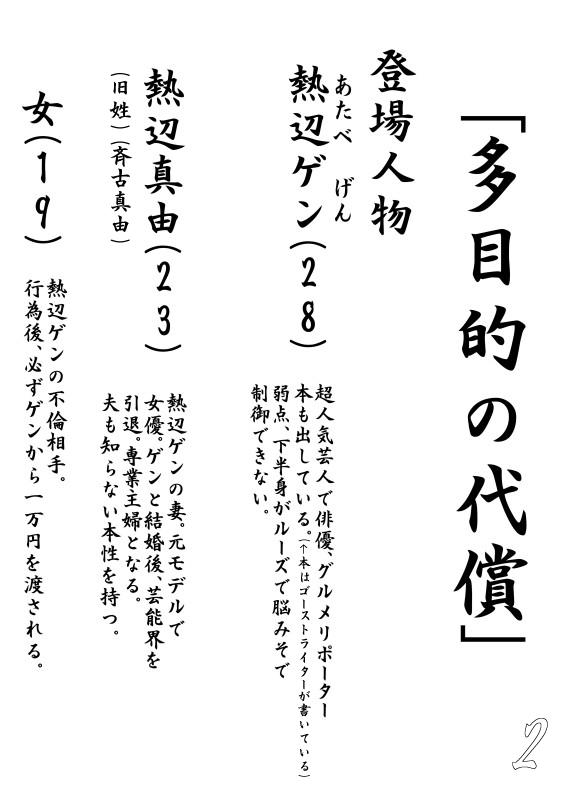 「多目的の代償」
登場人物
あたべ げん
熱辺ゲン(28)
超人気芸人で俳優、グルメリポーター
本も出している。(↑本はゴーストライターが書いている)
弱点、下半身がルーズで脳みそで
制御できない。
熱辺真由(23)
(旧姓)(斉古真由)
熱辺ゲンの妻。元モデルで
女優。ゲンと結婚後、芸能界を
引退。専業主婦となる。
夫も知らない本性を持つ。
女(19)
熱辺ゲンの不倫相手。
行為後、必ずゲンから一万円を渡される。
2